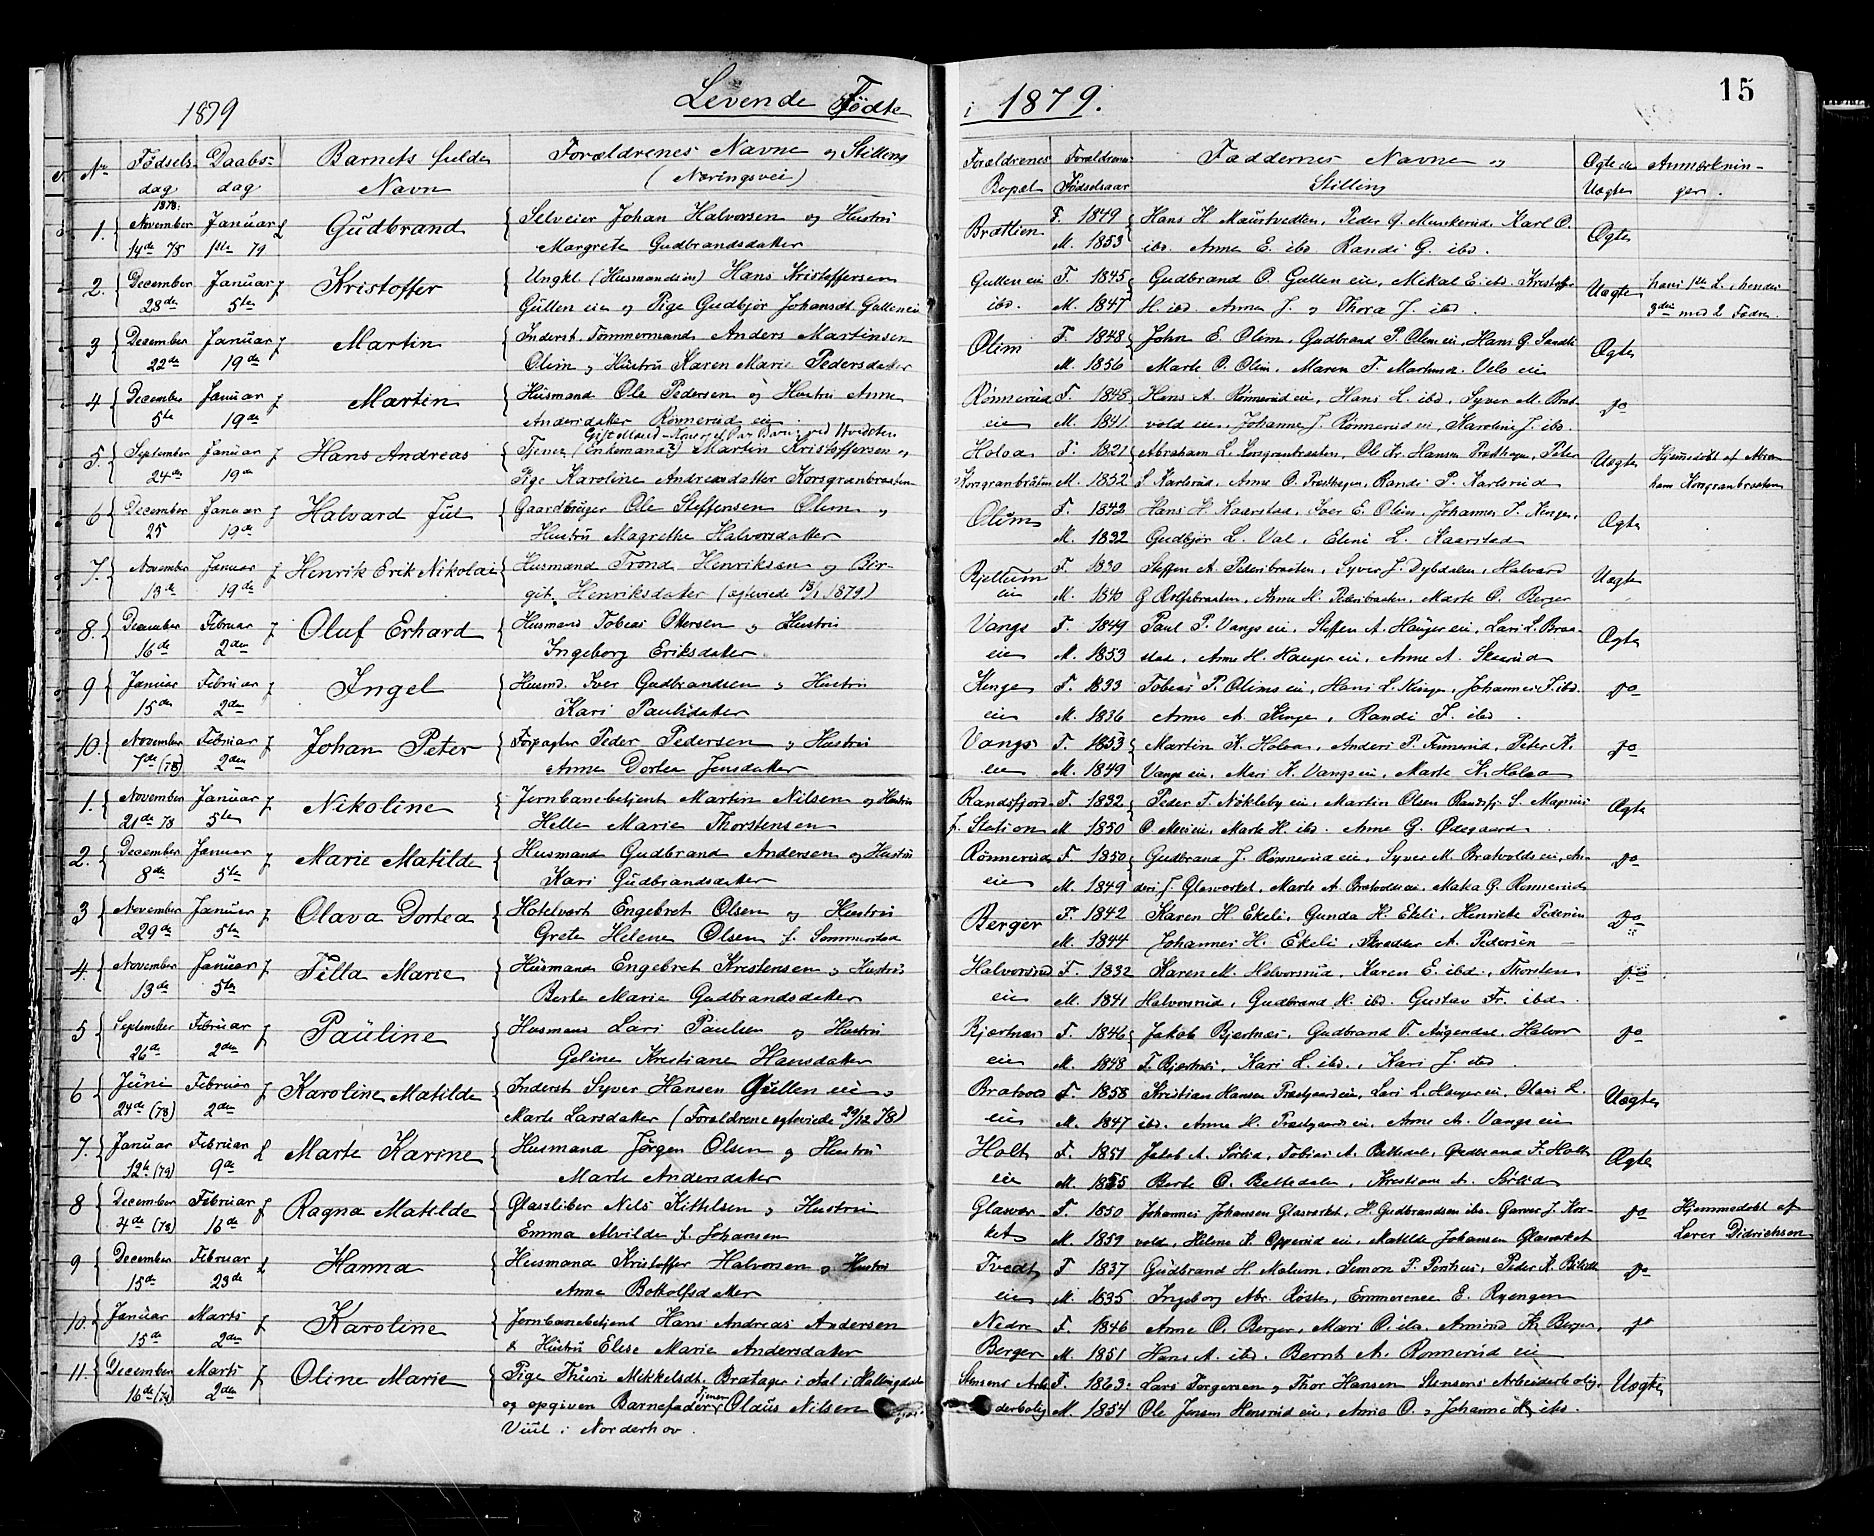 1879 Levende Fødte i 1879. 15
No Fødsels dag Daabs dag Barnets fulde Navn Forældrenes Navne og Stilling (Næringsvei) Forældrenes Bopæl Forældrenes Fødselsaar Faddernes Navne og Stilling Ægte el. Uægte Anmærkninger.
1878.
1. November Januar Gudbrand Selveier Johan Halvorsen og Hustru Brætlien F. 1849 Hans H. Maurtvedten, Peder G. Muskerud, Karl O. Ægte
14de 78 1ste 79 Margrete Gudbrandsdatter M. 1853 ibd. Anne E. ibd Randi G. ibd.
2. December Januar Kristoffer Ungkl. (Husmandssøn) Hans Kristoffersen Gullen eie F. 1845 Gudbrand O. Gullen eie, Mikal E. ibd. Kristoffer Uægte hans 1ste L., hendes
28de 5te Gullen eie og Pige Gudbjør Johansdt. Gulleneie ibd. M. 1847 H. ibd. Anne J. og Thora J. ibd. 3die med 2 Fædre.
3 December Januar Martin Inderst. Tømmermand Anders Martinsen Olim F. 1848 John E. Olim, Gudbrand P. Olim eie, Hans G. Ægte
22de 19de Olim og Hustru Karen Marie Pedersdatter M. 1856 Marte O. Olim, Maren T. Vels eie
4 December Januar Martin Husmand Ole Pedersen og Hustru Anne Rønnerud F. 1848 Hans A. Rønnerud eie, Hans L. ibd, Syver M. Brat- do
5te 19de Andersdatter Rønnerud eie eie M. 1841 vold eie, Johanne J. Rønnerud eie, Karoline J. ibd.
5. September Januar Hans Andreas Tjener (Enkemand?) Martin Kristoffersen og Holoa F. 1821 Abraham L. Korsgranbraaten, Ole Kr. Hansen Præsthagen, Peter Uægte Hjemmedøbt af Abra-
24de 19de Pige Karoline Andreasdatter Korsgranbraaten Korsgranbråten M. 1852 S. Karlsrud, Anne O. Præsthagen, Randi P. Karlsrud ham Korsgranbraaten
6 December Januar Halvard Jul Gaardbruger Ole Steffensen Olim og Olim F. 1842 Hans H. Kaarstad, Iver E. Olim, Johannes I. Kinge, Ægte
25 19de Hustru Magrethe Halvorsdatter M. 1832 Gudbjør L. Val, Eline L. Kaarstad
7. November Januar Henrik Erik Nikolai Husmand Trond Henriksen og Ber- Bjellum F. 1830 Steffen A. Pedersbraaten, Syver J. Dybdalen, Halvard Uægte
13de 19de git Henriksdatter (egteviede 13/1 1879) eie M. 1840 G. Rolfsbraaten, Anne H. Pedersbraaten, Marte O. Berger
8. December Februar Oluf Erhard Husmand Tobias Ottersen og Hustru Vangs F. 1849 Paul P. Vangs eie, Steffen A. Hauger eie, Lars L. Braa- Ægte
16de 2den Ingeborg Eriksdatter eie M. 1853 stad, Anne H. Hauger eie, Anne A. Skaarud
9 Januar Februar Ingel Husmd. Iver Gudbrandsen og Hustru Kinge F. 1833 Tobias P. Olims eie, Hans L. Kinge, Johannes I. ibd. do
15de 2den Kari Paulsdatter eie M. 1836 Anne A. Kinge, Randi I. ibd.
10. November Februar Johan Peter Forpagter Peder Pedersen og Hustru Vangs F. 1853 Martin K. Holoa, Anders P. Finnerud, Peter K. do
7de (78) 2den Anne Dortea Jensdatter eie M. 1849 Vangs eie, Mari K. Vangs eie, Marte K. Holoa
1. November Januar Nikoline Jernbanebetjent Martin Nilsen og Hustru Randsfjord F. 1832 Peder T. Nøkleby eie, Martin Olsen Randsfj. S. Magnus Ægte
21de 78 5te Helle Marie Thorstensen f. Station M. 1850 O. Moseeie, Marte H. ibd. Anne G. Ødegaard
2. December Januar Marie Matilde Husmand Gudbrand Andersen og Hustru Rønnerud F. 1850 Gudbrand J. Rønnerud eie, Syver M. Bratvolds eie, An- do
8de 5te Kari Gudbrandsdatter eie M. 1849 ders J. Glasværket, Marte A. Bratvolds eie, Maka G. Rønnerud
3 November Januar Olava Dortea Hotelvert Engebret Olsen og Hustru Berger F. 1842 Karen H Ekeli, Gunda H. Ekeli, Henriette Pedersen do
29de 5te Grete Helene Olsen f. Sommerstad M. 1844 Johannes H. Ekeli, Skrædder A. Pedersen
4. November Januar Tilla Marie Husmand Engebret Kristensen og Hustru Halvorsrud F. 1832 Karen M. Halvorsrud, Karen E. ibd., Thorsten do
13de 5te Berte Marie Gudbrandsdatter eie M. 1841 Halvorsrud, Gudbrand H. ibd. Gustav Fr. ibd.
5 September Februar Pauline Husmand Lars Paulsen og Hustru Bjertnæs F. 1846 Jakob Bjertnæs, Gudbrand T. Augendal, Halvor do
26de 2den Goline Kristiane Hansdatter eie M. 1848 T. Bjertnæs, Kari L. ibd., Kari J. ibd
6 Juni Februar Karoline Matilde Inderst Syver Hansen Gullen eie og Bratvold F. 1858 Kristian Hansen Præstgaard eie, Lars L. Hauger eie, Olava L. Uægte
24de (78) 2de Marte Larsdatter (Forældrene egteviede 29/12 78) eie M. 1847 ibd. Anne H. Præstgaard eie, Anne A. Vangs eie
7. Januar Februar Marte Karine Husmand Jørgen Olsen og Hustru Holt F. 1851 Jakob A. Sørlid, Tobias A. Bettedal, Gudbrand F. Holt Ægte
12te (79) 9de Marte Andersdatter eie M. 1855 Berte O. Bettedalen, Kristian A. Sørlid
8 December Februar Ragna Matilde Glassliber Nils Kittelsen og Hustru Glasvær- F. 1850 Johannes Johansen Glasværket, H. Gudbrandsen ibd. Garver J. Kor- do Hjemmedøbt af
4de (78) 16de Emma Alvilde f. Johansen ket M. 1859 vold, Helene K. Opperud eie, Matilde Johansen Glasværket Lærer Didrichsen
9 December Februar Hanna Husmand Kristoffer Halvorsen og Hustru Tvedt F. 1837 Gudbrand H. Molum, Simon P. Pontius, Peder K. do
15de 23de Anne Botholfsdatter eie M. 1835 Ingeborg Abr. Røste, Emmerense E. Ryengen
10. Januar Marts Karoline Jernbanebetjent Hans Andreas Andersen Nedre F. 1846 Anne O. Berger, Mari O. ibd., Amund K. Berger, do
15de 2den & Hustru Elise Marie Andersdatter Berger M. 1851 Hans A. ibd. Bernt A. Rønnerud eie
11. December Marts Oline Marie Pige Thuri Mikkelsdt. Bratager i Aal i Hallingdal Stensens Arbei- F. 1863 Lars Torgersen og Thor Hansen Stensens Arbeiderbolig Uægte
16de (78) 2den og opgiven Barnefader Tjener Olaus Nilsen derbolig M. 1854 Ole Jensen Hensrud eie, Anne O. og Johanne H. ibd.
Viul i Norderhov.